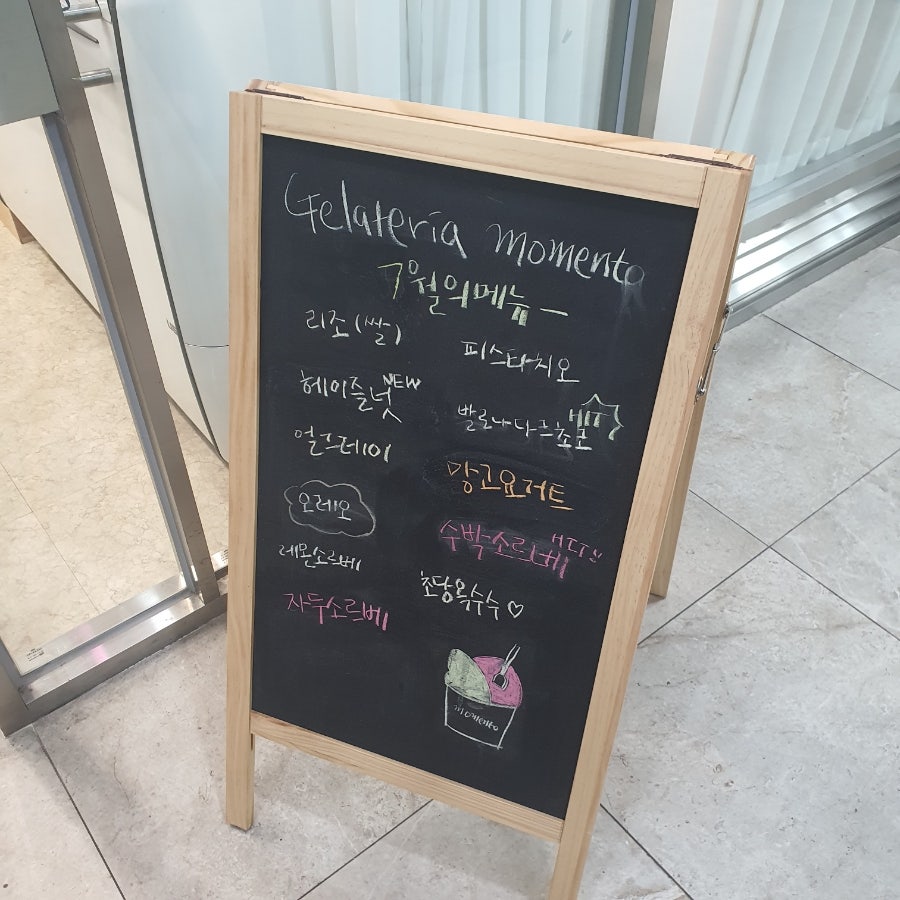 Gelateria momento
7월의메뉴 -
리조(쌀)
헤이즐넛 NEW
얼그레이
오레오
레몬소르베
자두소르베
피스타치오
발로나다크초코 HIT
망고요거트
수박소르베 HIT!!
초당옥수수♡
momento